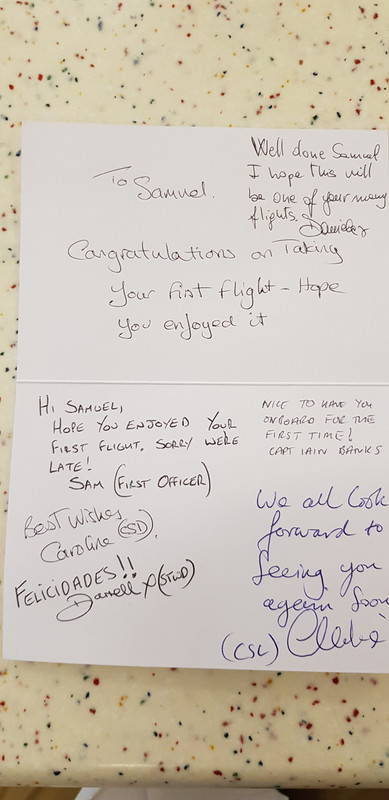 To Samuel.
Well done Samuel
I hope this will
be one of your many
flights.
Congratulations on Taking
Your first flight - Hope
You enjoyed it
Hi Samuel,
Hope you enjoyed your
first flight. Sorry were
late!
Sam (First Officer)
Best Wishes
Caroline (CSD).
Felicidades!!
Darrell x (STWD)
Nice to have you
onboard for the
first time!
Capt Iain Banks
We all look
forward to
seeing you
again soon
(CSL)